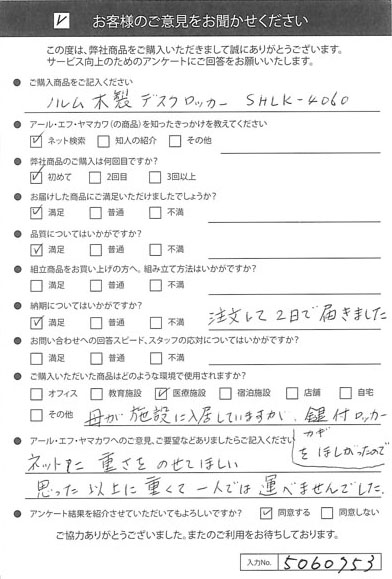 ✓ お客様のご意見をお聞かせください
この度は、弊社商品をご購入いただきまして誠にありがとうございます。
サービス向上のためのアンケートにご回答をお願いいたします。
● ご購入商品をご記入ください
ノルム木製デスクロッカー SHLK-4060
● アール・エフ・ヤマカワ(の商品)を知ったきっかけを教えてください
☑ ネット検索 □ 知人の紹介 □ その他
● 弊社商品のご購入は何回目ですか?
☑ 初めて □ 2回目 □ 3回以上
● お届けした商品にご満足いただけましたでしょうか?
☑ 満足 □ 普通 □ 不満
● 品質についてはいかがですか?
☑ 満足 □ 普通 □ 不満
● 組立商品をお買い上げの方へ。組み立て方法はいかがですか?
□ 満足 □ 普通 □ 不満
● 納期についてはいかがですか?
☑ 満足 □ 普通 □ 不満 注文して2日で届きました
● お問い合わせへの回答スピード、スタッフの応対についてはいかがですか?
□ 満足 □ 普通 □ 不満
● ご購入いただいた商品はどのような環境で使用されますか?
□ オフィス □ 教育施設 ☑ 医療施設 □ 宿泊施設 □ 店舗 □ 自宅
□ その他 母が施設に入居していますが、鍵付ロッカー
カギ
をほしがったので
● アール・エフ・ヤマカワへのご意見、ご要望などありましたらご記入ください
ネット上に重さをのせてほしい
思った以上に重くて一人では運べませんでした。
● アンケート結果を紹介させていただいてもよろしいですか? ☑ 同意する □ 同意しない
ご協力ありがとうございました。またのご利用をお待ちしております。
入力No. 5060953